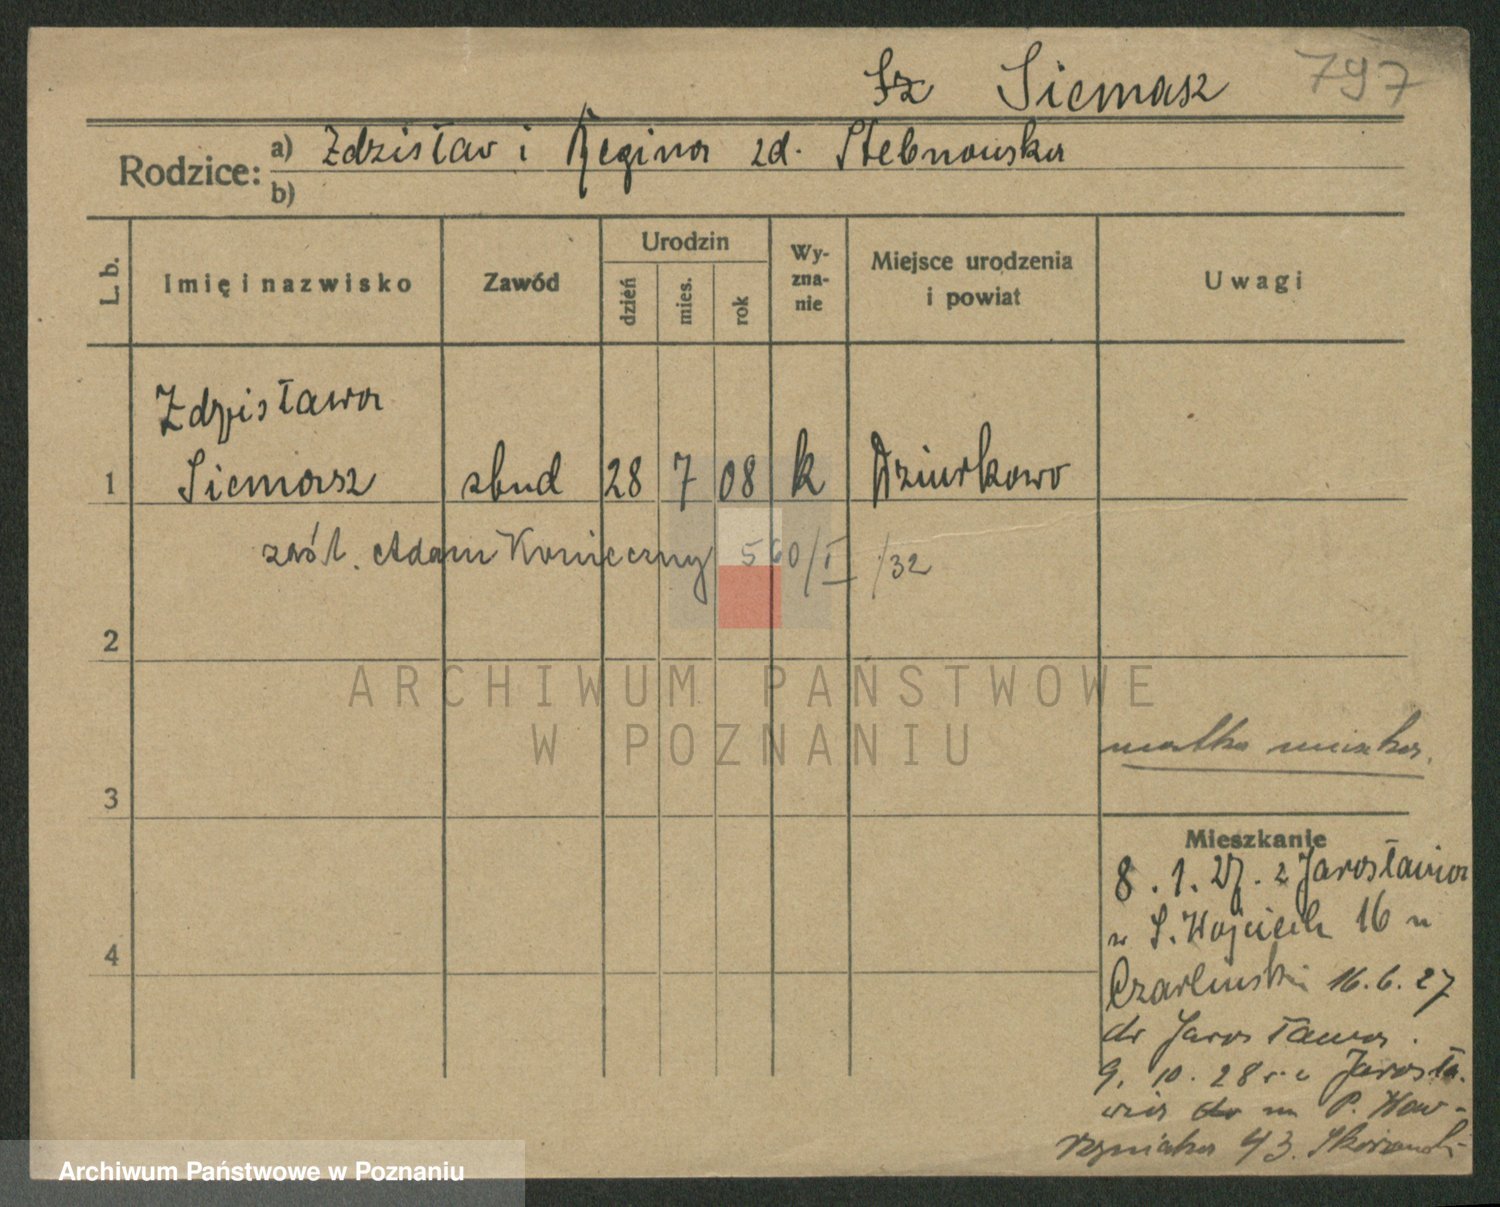 Sz Siemasz 797
Rodzice: a) Zdzisław i Regina zd. Stebnowska
b)
L. b.
Imię i nazwisko
Zawód
Urodzin
dzień
mies.
rok
Wy-
zna-
nie
Miejsce urodzenia
i powiat
Uwagi
Zdzisława
1 Siemasz zbud 28 7 08 k Dziurkowo
zaśl. Adam Konieczny 560/I/32
2
ARCHIWUM PAŃSTWOWE
W POZNANIU
matka
3
Mieszkanie
8.1.27. z Jarosławia
S. Wojciech 16 u
4
Czarlinski 16.6.27
do Jarosława.
9.10.28 Jarosła-
wia do P. Waw-
rzyniaka 43.
Archiwum Państwowe w Poznaniu